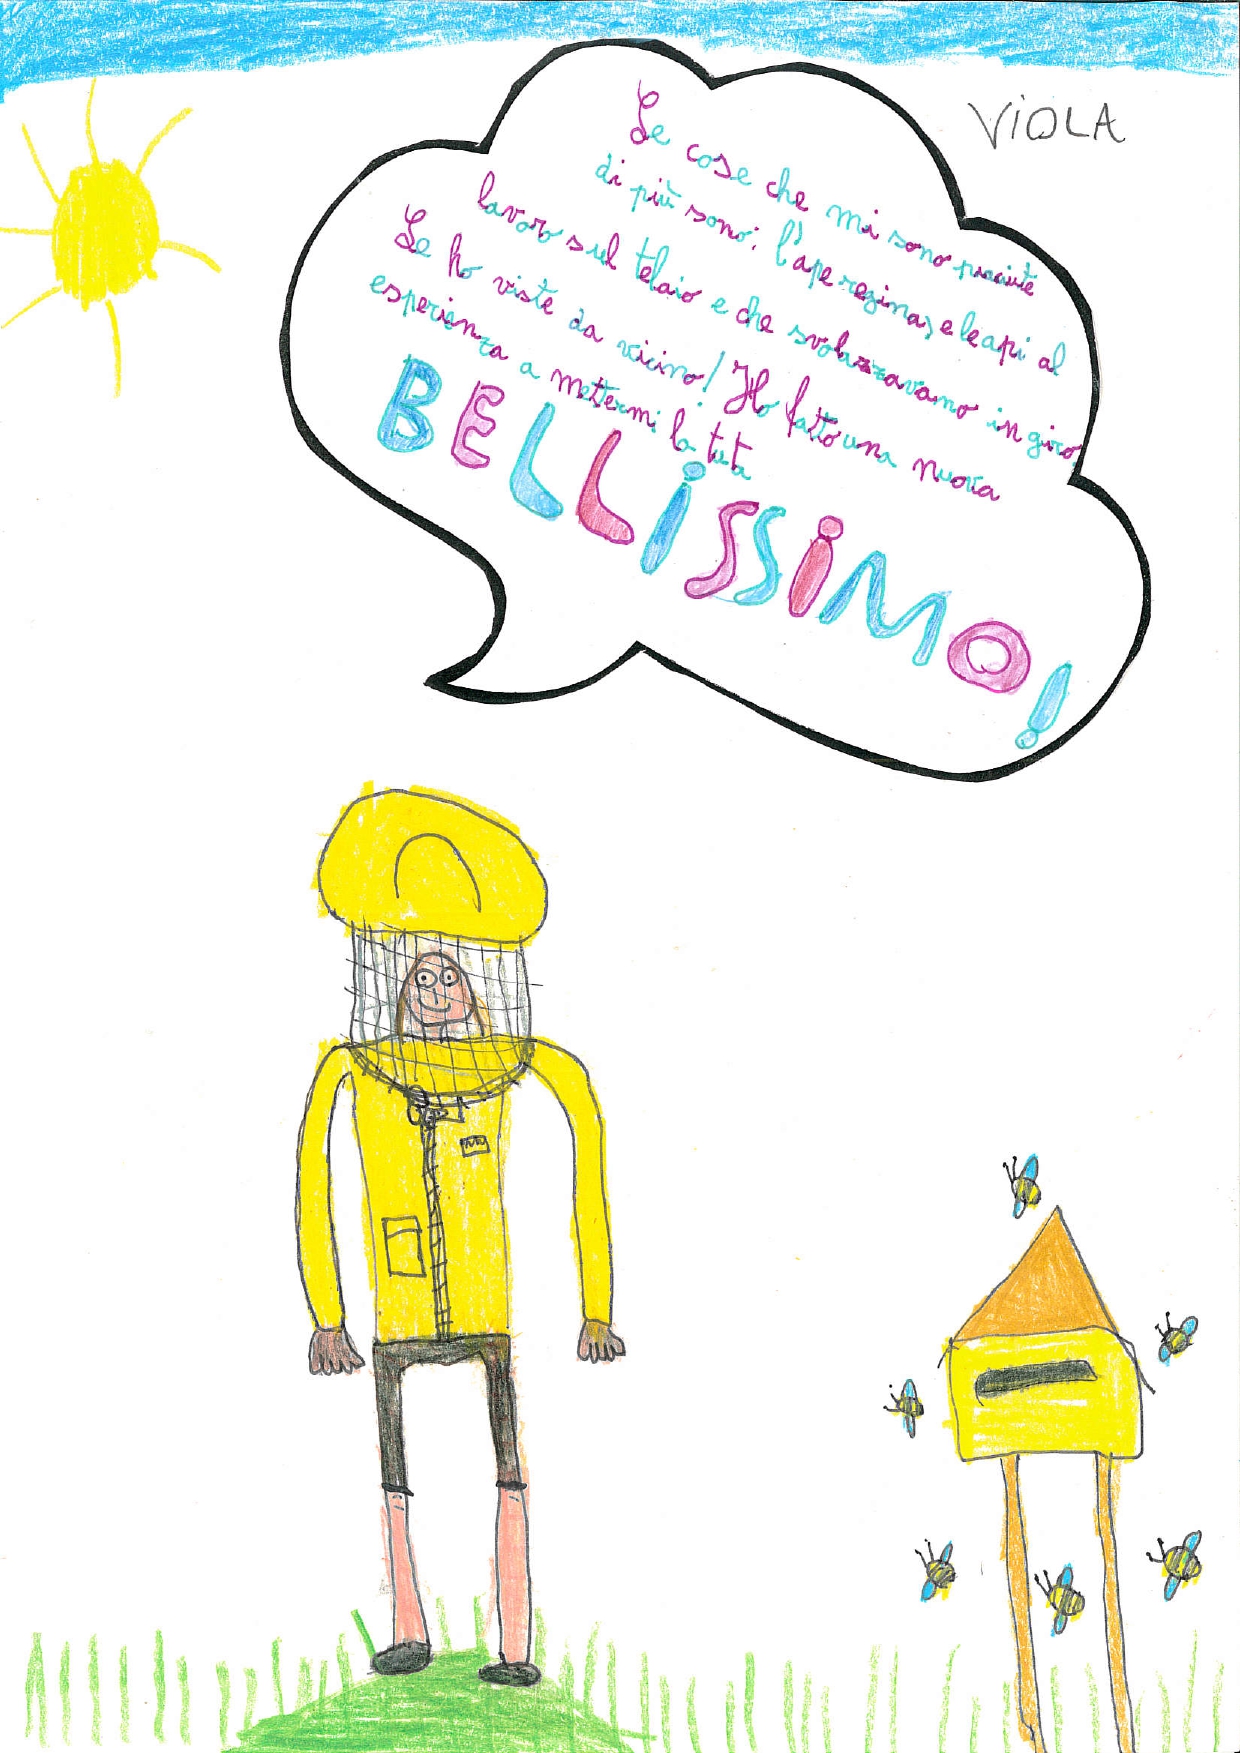 VIOLA
Le cose che mi sono piaciute
di più sono: l'ape regina, e le api al
lavoro sul telaio e che svolazzavano in giro.
Le ho viste da vicino! Ho fatto una nuova
esperienza a mettermi la tuta
BELLISSIMO!